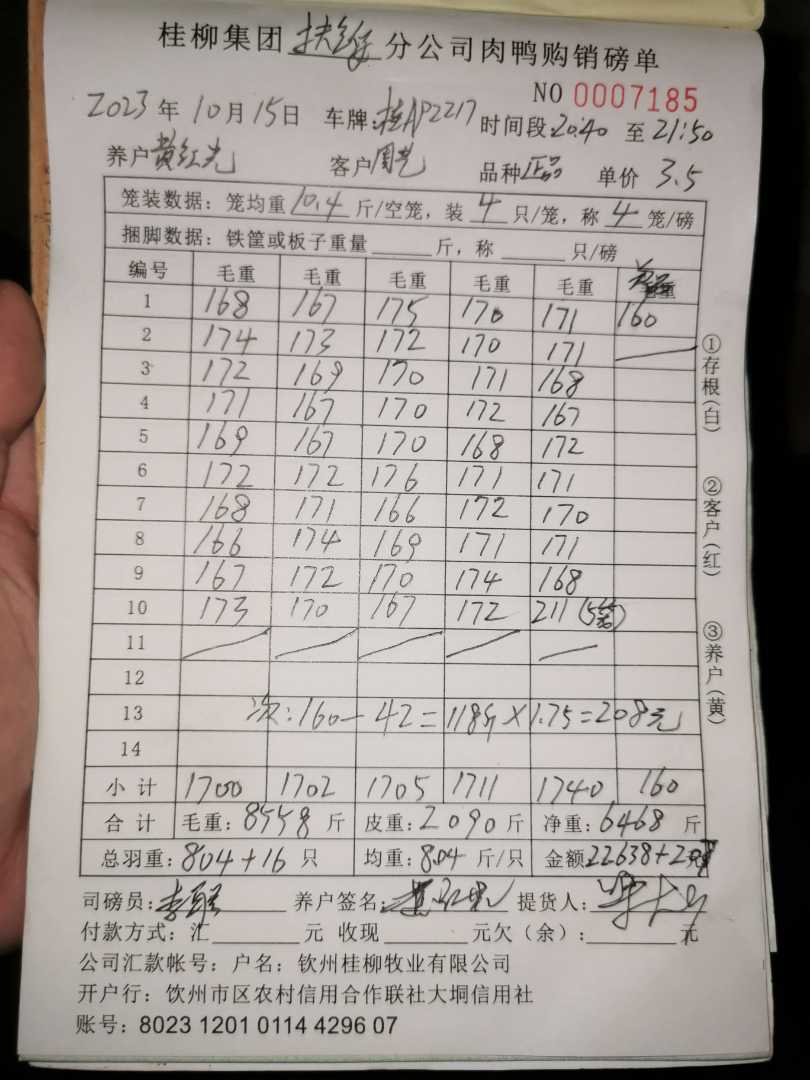 桂柳集团 扶绥 分公司肉鸭购销磅单
NO 0007185
2023 年 10 月 15 日 车牌:桂AP2217 时间段:20:40 至 21:50
养户 黄红光 客户 周艺 品种 正品 单价 3.5
笼装数据：笼均重 10.4 斤/空笼，装 4 只/笼，称 4 笼/磅
捆脚数据：铁筐或板子重量______斤，称______只/磅
编号 毛重 毛重 毛重 毛重 毛重
1 168 167 175 170 171 160
2 174 173 172 170 171
3 172 169 170 171 168
4 171 167 170 172 167
5 169 167 170 168 172
6 172 172 176 171 171
7 168 171 166 172 170
8 166 174 169 171 171
9 167 172 170 174 168
10 173 170 167 172 211 (5笼)
11
12
13 次:160-42=118斤×1.75=208元
14
小计 1700 1702 1705 1711 1740 160
合计 毛重：8558 斤 皮重：2090 斤 净重：6468 斤
总羽重：804+16 只 均重：8.04 斤/只 金额 22638+
司磅员： 养户签名： 提货人：
付款方式：汇______元 收现______元欠（余）：______元
公司汇款帐号：户名：钦州桂柳牧业有限公司
开户行：饮州市区农村信用合作联社大垌信用社
账号：8023 1201 0114 4296 07
①存根(白)
②客户(红)
③养户(黄)